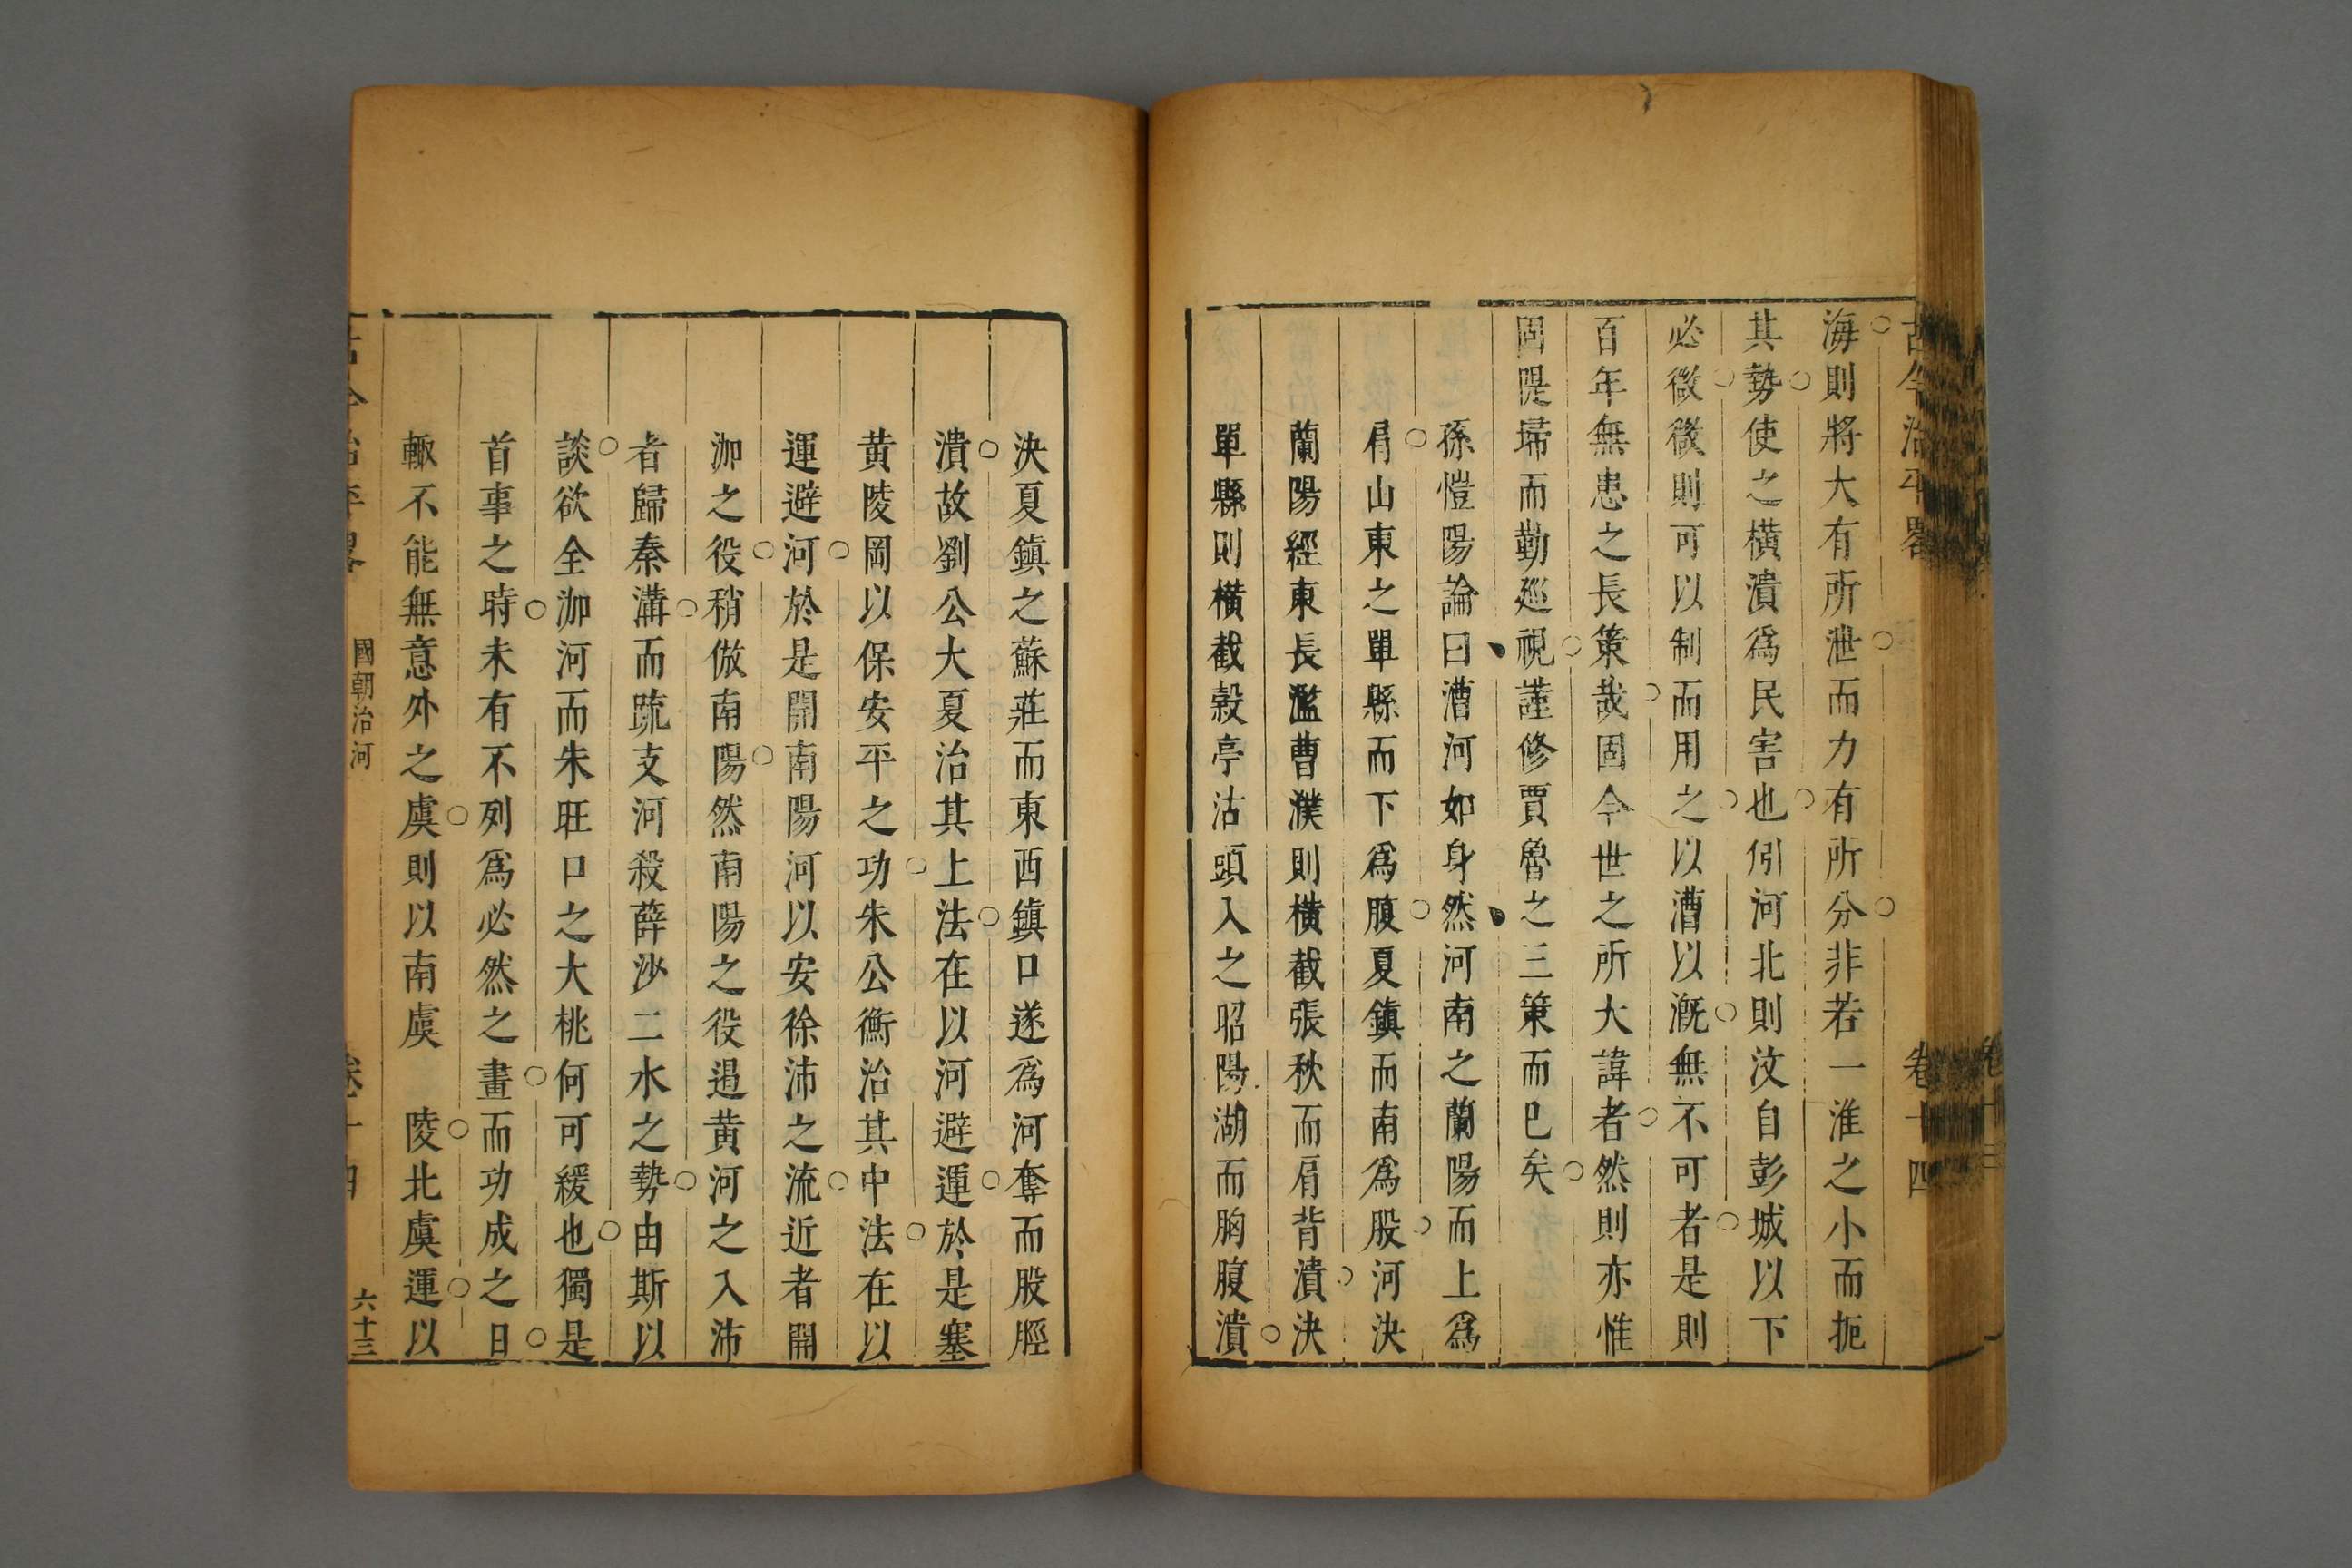 古今治平畧
卷十四
海則將大有所泄而力有所分非若一淮之小而扼
其勢使之橫潰爲民害也引河北則汶自彭城以下
必微微則可以制而用之以漕以漑無不可者是則
百年無患之長策哉固今世之所大諱者然則亦惟
固隄埽而勤廵視謹修賈魯之三策而已矣
孫愷陽論曰漕河如身然河南之蘭陽而上爲
肩山東之單縣而下爲腹夏鎮而南爲股河決
蘭陽經東長濫曹濮則橫截張秋而肩背潰決
單縣則橫截穀亭沽頭入之昭陽湖而胸腹潰
決夏鎮之蘇莊而東西鎮口遂爲河奪而股脛
潰故劉公大夏治其上法在以河避運於是塞
黄陵岡以保安平之功朱公衡治其中法在以
運避河於是開南陽河以安徐沛之流近者開
泇之役稍倣南陽然南陽之役遏黄河之入沛
者歸秦溝而疏支河殺薛沙二水之勢由斯以
談欲全泇河而朱旺口之大桃何可緩也獨是
首事之時未有不列爲必然之畫而功成之日
輙不能無意外之虞則以南虞 陵北虞運以
古今治平畧
國朝治河
卷十四
六十三